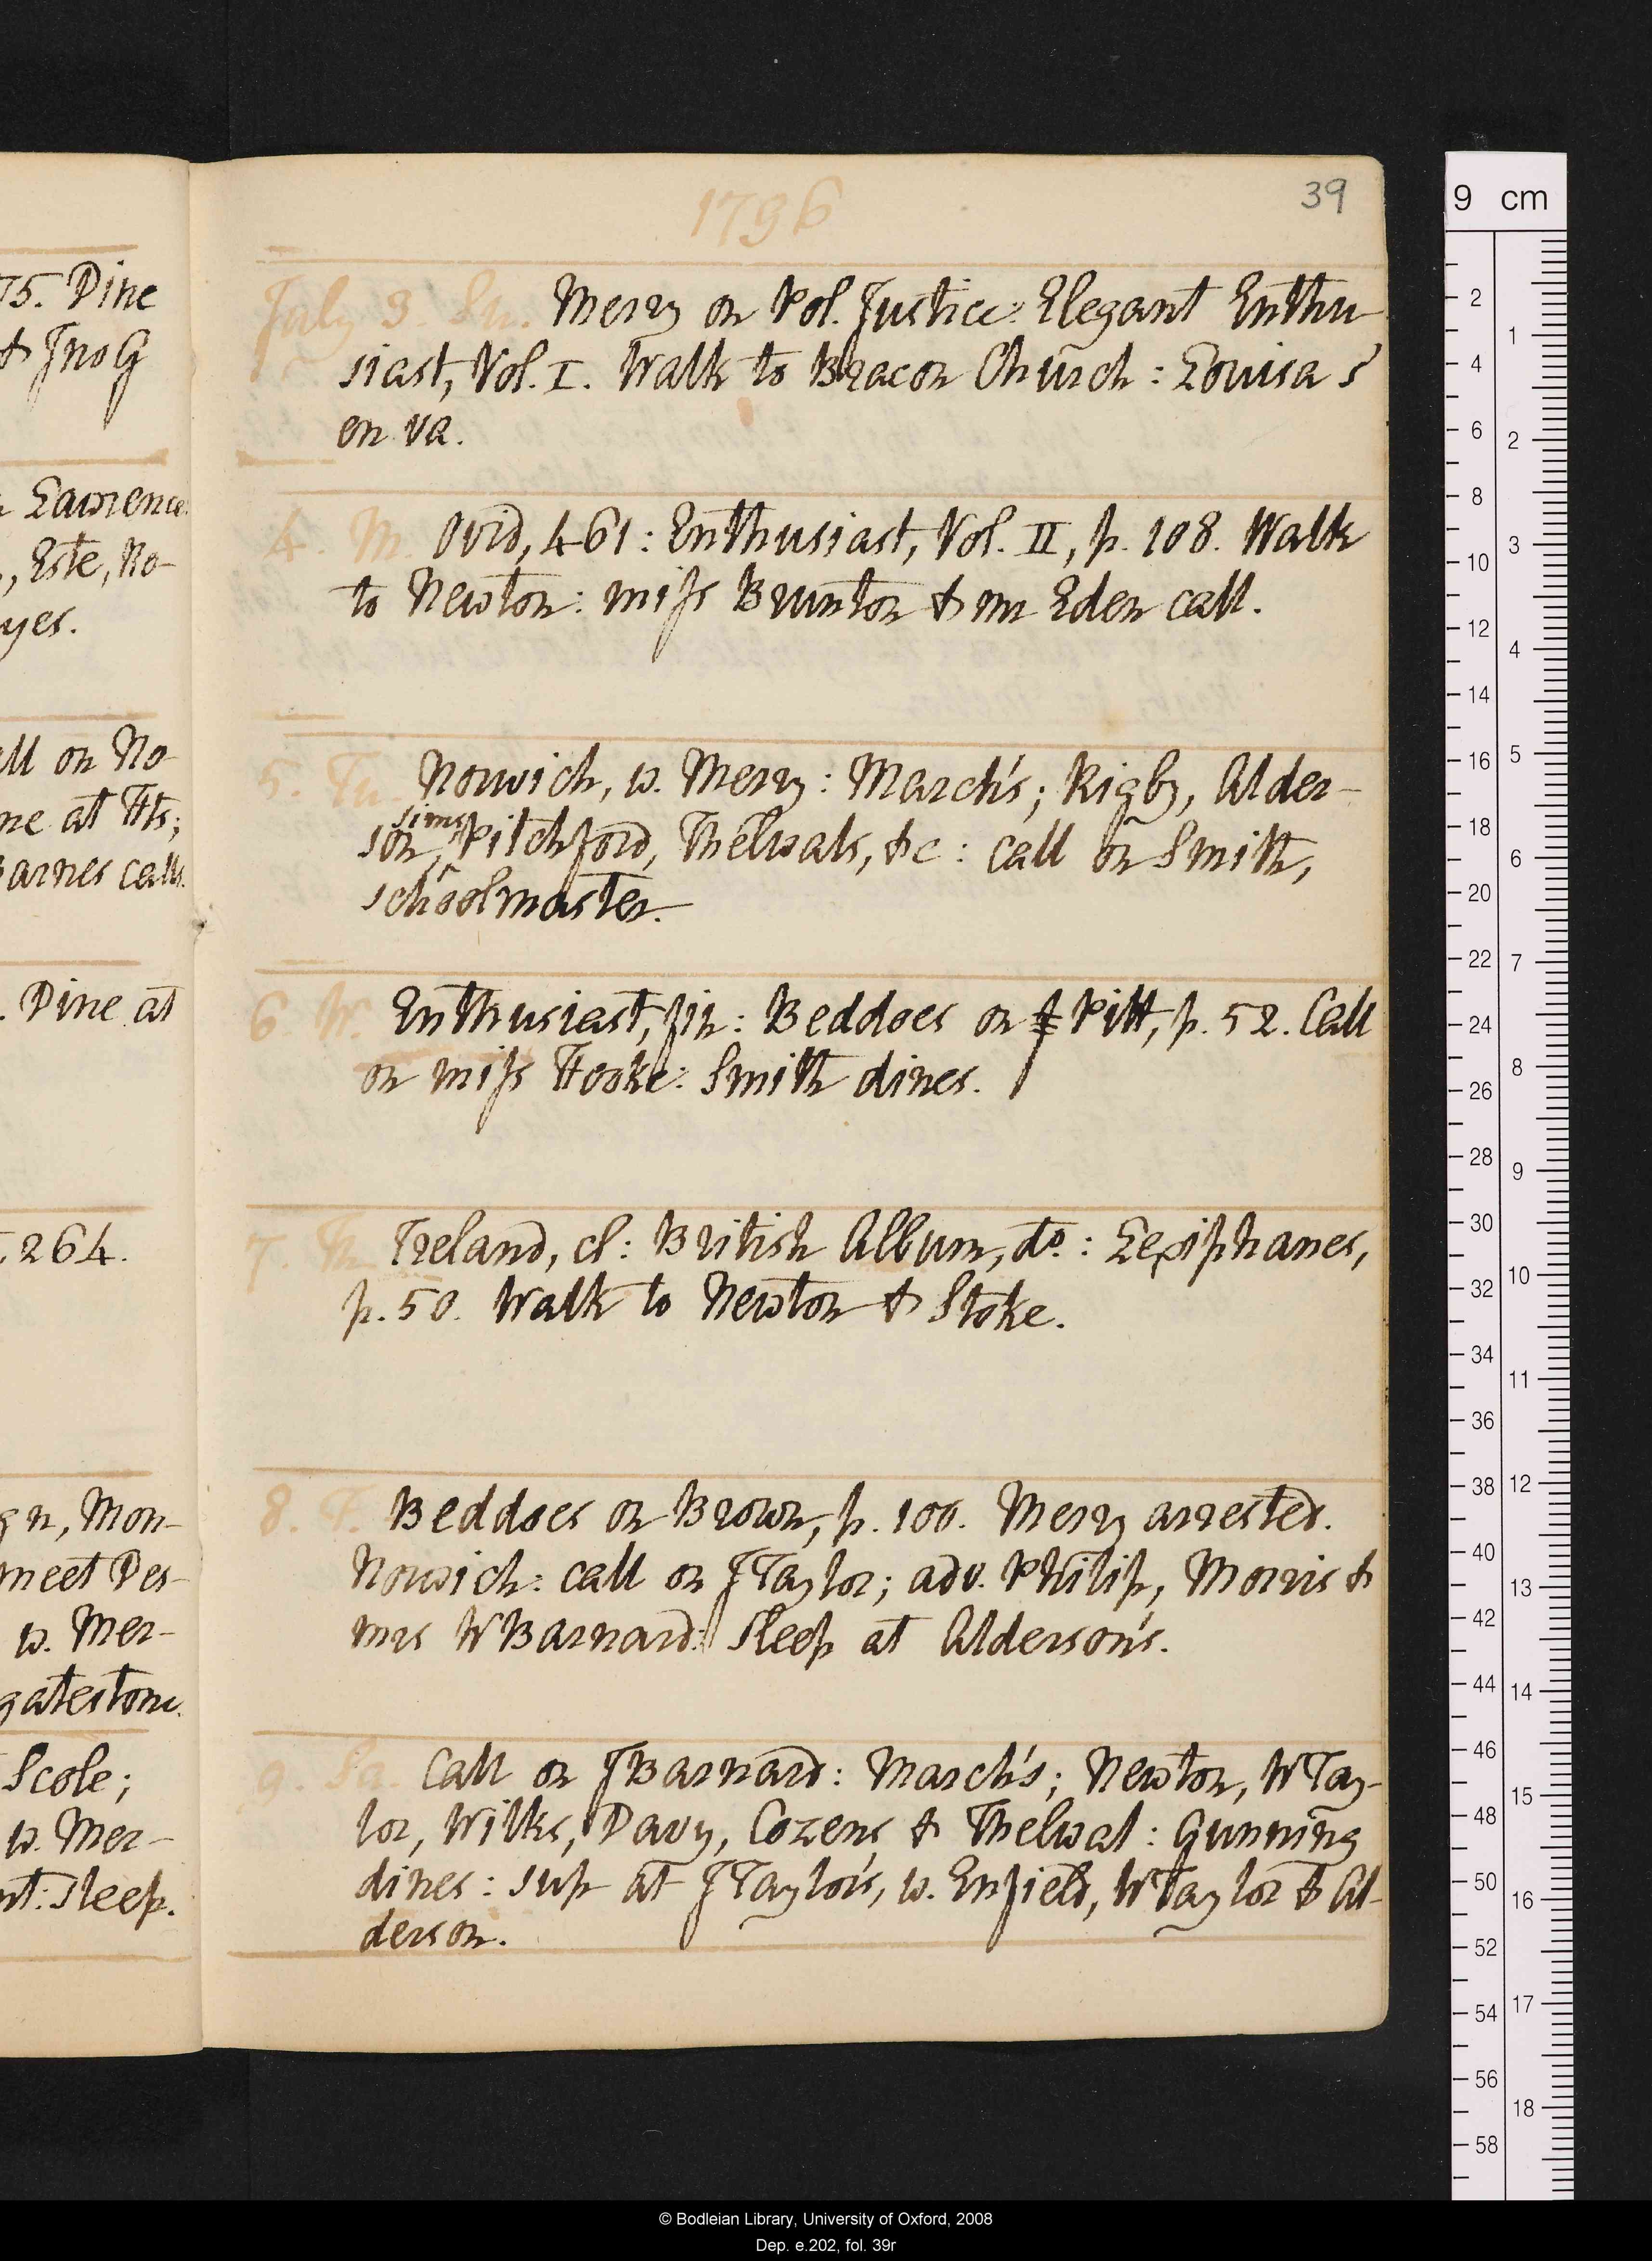 39
1796
75. Dine
& JnoG
Lawrence
, Este, Ro-
yes.
all on No-
ne at Hts;
Barnes calls.
. Dine at
264.
gn, Mon-
meet Des-
w. Mer-
gatestone.
Scole;
w. Mer-
nt: sleep.
July 3. Su. Merry on Pol. Justice: Elegant Enthu-
siast, Vol. I. Walk to Bracon Church: Louisa
en va.
4. M. Ovid, 461: Enthusiast, Vol. II, p. 108. Walk
to Newton: miss Brunton & mr Eden call.
5. Tu. Norwich, w. Merry: March's; Rigby, Alder-
son, Sims, Pitchford, Thelwals, &c: call on Smith,
schoolmaster.
6 W. Enthusiast, fin: Beddoes on Pitt, p. 52. Call
on miss Hooke: Smith dines.
7. Th. Ireland, cl: British Album, do.: Lexiphanes,
p. 50. Walk to Newton & Stoke.
8. F. Beddoes on Brown, p. 100. Merry arrested.
Norwich: call on JTaylor; adv. Philip, Morris &
mrs WBarnard: Sleep at Alderson's.
9. Sa. Call on JBarnard: March's; Newton, WTay-
lor, Wilks, Davy, Cozens & Thelwal: Gunning
dines: sup at JTaylor's, w. Enfield, WTaylor & Al-
derson.
9 cm
2
4
6
8
10
12
14
16
18
20
22
24
26
28
30
32
34
36
38
40
42
44
46
48
50
52
54
56
58
1
2
3
4
5
6
7
8
9
10
11
12
13
14
15
16
17
18
© Bodleian Library, University of Oxford, 2008
Dep. e.202, fol. 39r